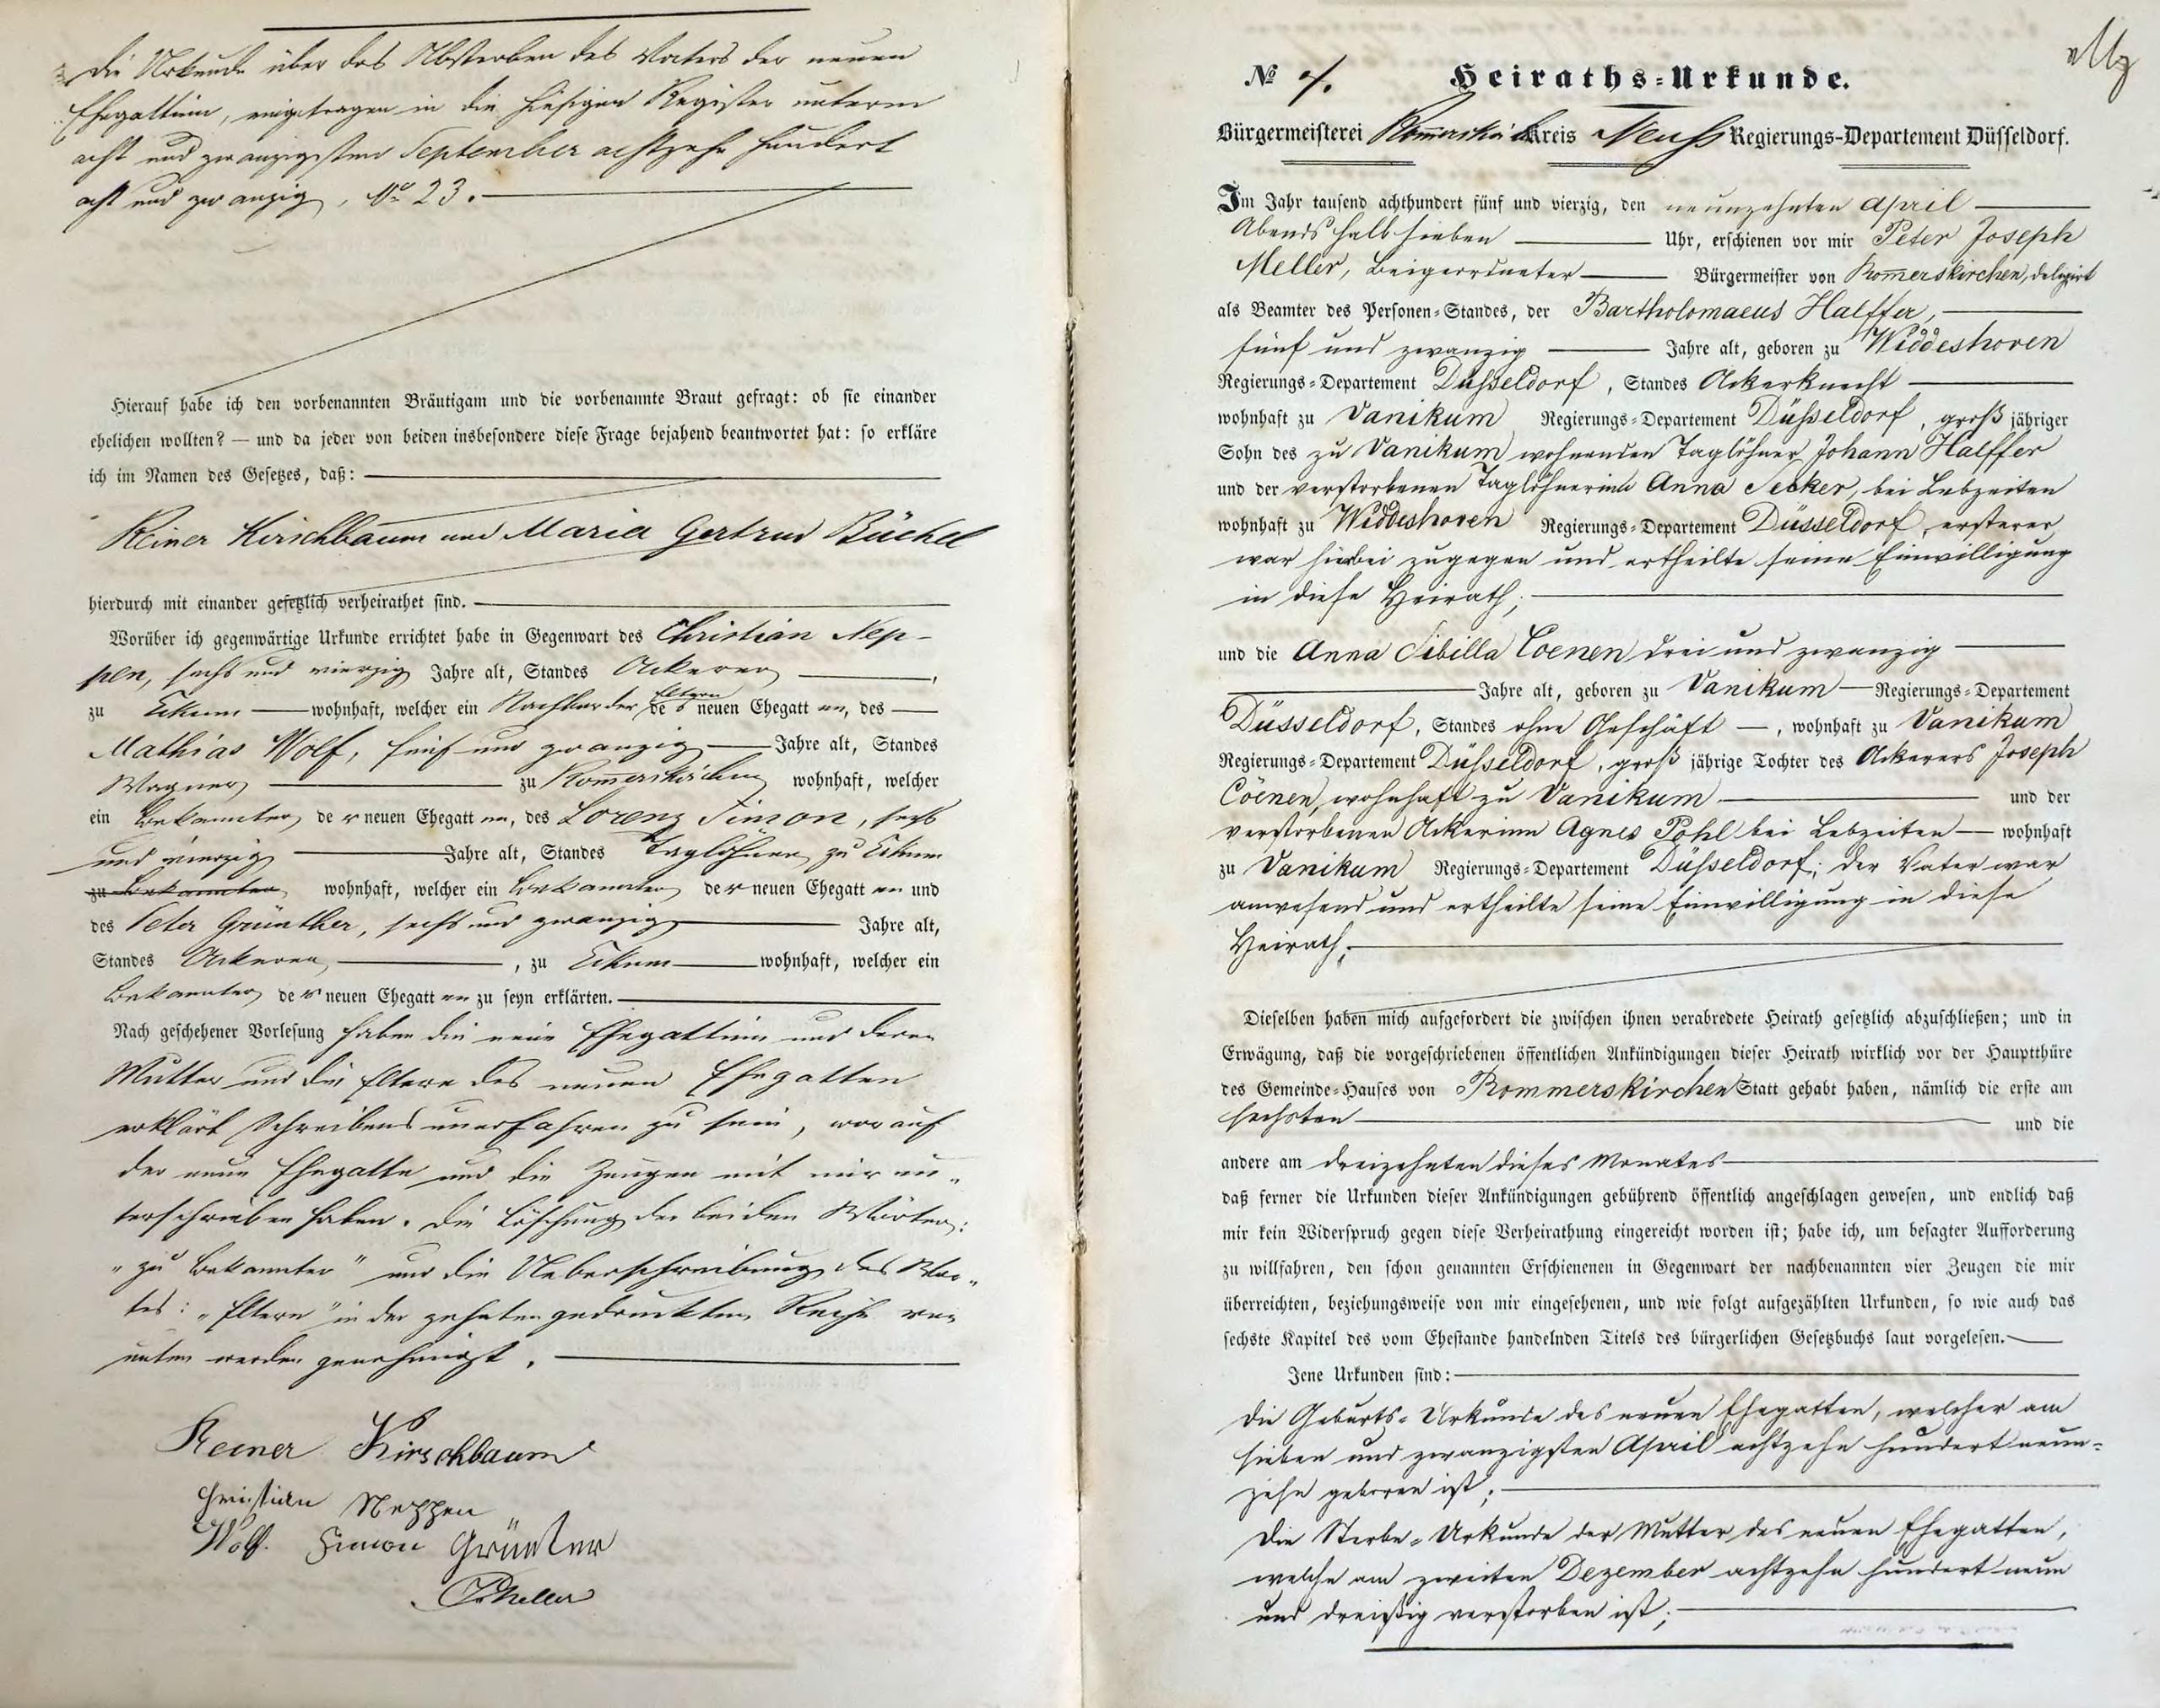 Die Urkunde über das Absterben des Vaters der neuen
Ehegattinn, eingetragen in die hiesigen Register unterm
acht und zwanzigsten September achtzehn hundert
acht und zwanzig, No 23.
Hierauf habe ich den vorbenannten Bräutigam und die vorbenannte Braut gefragt: ob sie einander
ehelichen wollten? — und da jeder von beiden insbesondere diese Frage bejahend beantwortet hat: so erkläre
ich im Namen des Gesetzes, daß:
Reiner Kirschbaum und Maria Gertrud Büchel
hierdurch mit einander gesetzlich verheirathet sind.
Worüber ich gegenwärtige Urkunde errichtet habe in Gegenwart des Christian Nep-
pen, sechs und vierzig Jahre alt, Standes Ackerer,
zu Eckum wohnhaft, welcher ein Nachbar der Eltern des neuen Ehegatten, des
Mathias Wolf, fünf und zwanzig Jahre alt, Standes
Wagner zu Rommerskirchen wohnhaft, welcher
ein Bekannter der neuen Ehegatten, des Lorenz Simon, sechs
und vierzig Jahre alt, Standes Taglöhner zu Eckum
zu Bekannter wohnhaft, welcher ein Bekannter der neuen Ehegatten und
des Peter Grünther, sechs und zwanzig Jahre alt,
Standes Ackerer, zu Eckum wohnhaft, welcher ein
Bekannter der neuen Ehegatten zu seyn erklärten.
Nach geschehener Vorlesung haben die neue Ehegattinn und deren
Mutter und die Eltern des neuen Ehegatten
erklärt Schreibens unerfahren zu sein, worauf
der neue Ehegatte und die Zeugen mit mir un-
terschrieben haben. Die Löschung der beiden Wörter:
"zu Bekannter" und die Ueberschreibung des Wor-
tes: "Eltern" in der zehnten gedruckten Reihe von
unten werden genehmigt.
Reiner Kirschbaum
Christian Neppen
Wolf. Simon Grünter
Meller
No 7. Heiraths-Urkunde.
Bürgermeisterei Rommerskirchen Kreis Neuss Regierungs-Departement Düsseldorf.
Im Jahr tausend achthundert fünf und vierzig, den neunzehnten April
Abends halb sieben Uhr, erschienen vor mir Peter Joseph
Meller, Beigeordneter Bürgermeister von Rommerskirchen, delegirt
als Beamter des Personen-Standes, der Bartholomaeus Halffer,
fünf und zwanzig Jahre alt, geboren zu Widdeshoven
Regierungs-Departement Düsseldorf, Standes Ackerknecht
wohnhaft zu Vanikum Regierungs-Departement Düsseldorf, groß jähriger
Sohn des zu Vanikum wohnenden Taglöhner Johann Halffer
und der verstorbenen Taglöhnerinn Anna Secker, bei Lebzeiten
wohnhaft zu Widdeshoven Regierungs-Departement Düsseldorf, ersterer
war hierbei zugegen und ertheilte seine Einwilligung
in diese Heirath;
und die Anna Sibilla Coenen drei und zwanzig
Jahre alt, geboren zu Vanikum Regierungs-Departement
Düsseldorf, Standes ohne Geschäft, wohnhaft zu Vanikum
Regierungs-Departement Düsseldorf, groß jährige Tochter des Ackerers Joseph
Cöenen, wohnhaft zu Vanikum und der
verstorbenen Ackerinn Agnes Pohl bei Lebzeiten wohnhaft
zu Vanikum Regierungs-Departement Düsseldorf; der Vater war
anwesend und ertheilte seine Einwilligung in diese
Heirath;
Dieselben haben mich aufgefordert die zwischen ihnen verabredete Heirath gesetzlich abzuschließen; und in
Erwägung, daß die vorgeschriebenen öffentlichen Ankündigungen dieser Heirath wirklich vor der Hauptthüre
des Gemeinde-Hauses von Rommerskirchen Statt gehabt haben, nämlich die erste am
sechsten und die
andere am dreizehnten dieses Monates
daß ferner die Urkunden dieser Ankündigungen gebührend öffentlich angeschlagen gewesen, und endlich daß
mir kein Widerspruch gegen diese Verheirathung eingereicht worden ist; habe ich, um besagter Aufforderung
zu willfahren, den schon genannten Erschienenen in Gegenwart der nachbenannten vier Zeugen die mir
überreichten, beziehungsweise von mir eingesehenen, und wie folgt aufgezählten Urkunden, so wie auch das
sechste Kapitel des vom Ehestande handelnden Titels des bürgerlichen Gesetzbuchs laut vorgelesen.
Jene Urkunden sind:
Die Geburts-Urkunde des neuen Ehegatten, welcher am
sieben und zwanzigsten April achtzehn hundert neun-
zehn geboren ist;
Die Sterbe-Urkunde der Mutter des neuen Ehegatten,
welche am zweiten Dezember achtzehn hundert neun
und dreißig verstorben ist;